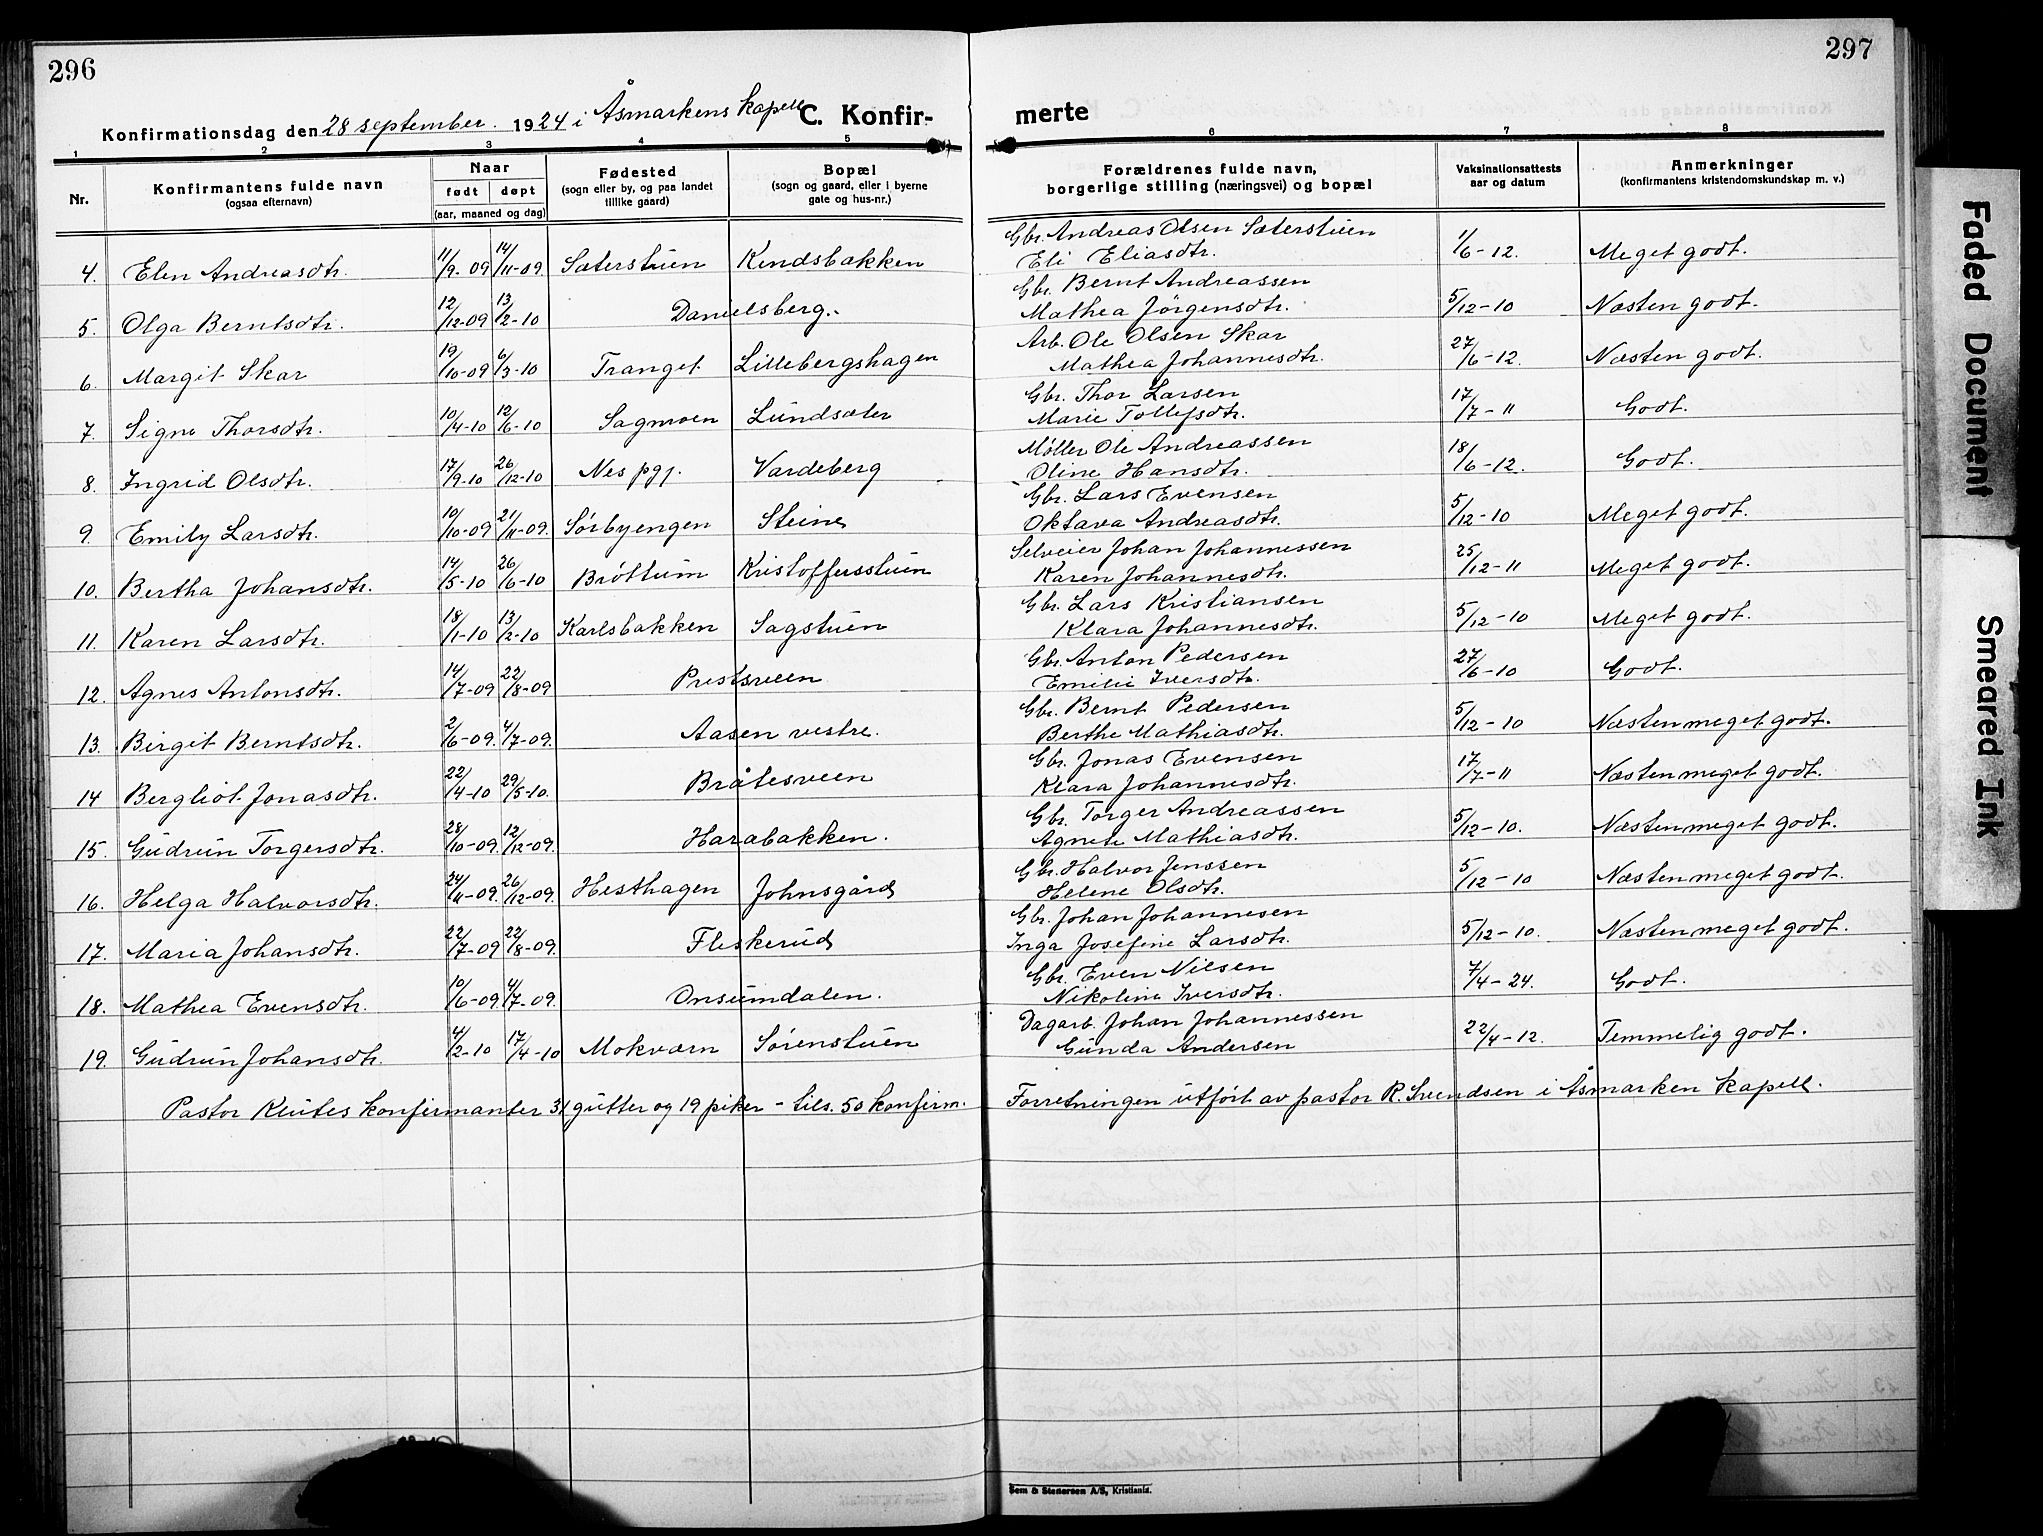 296
Konfirmationsdag den 28 september. 1924 i Åsmarkens kapell C. Konfir-
1 2 3 4 5
Nr. Konfirmantens fulde navn (ogsaa efternavn) Naar født døpt (aar, maaned og dag) Fødested (sogn eller by, og paa landet tillike gaard) Bopæl (sogn og gaard, eller i byerne gate og hus-nr.)
4. Elen Andreasdtr. 11/9-09 14/11-09 Sæterstuen Kindsbakken
5. Olga Berntsdtr. 12/12-09 13/2-10 Danielsberg.
6. Margit Skar 19/10-09 6/3-10 Tranget Lillebergshagen
7. Signe Thorsdtr. 10/4-10 12/6-10 Sagmoen Lundsæter
8. Ingrid Olsdtr. 17/9-10 26/12-10 Nes pgj. Vardeberg
9. Emily Larsdtr. 10/10-09 21/11-09. Sørbyengen Steine
10. Bertha Johansdtr. 14/5-10 26/6-10 Brøttum Kristoffersstuen
11. Karen Larsdtr. 18/1-10 13/2-10 Karlsbakken Sagstuen
12. Agnes Antonsdtr. 14/7-09 22/8-09 Prestsveen
13. Birgit Berntsdtr. 2/6-09. 4/7-09. Aasen vestre.
14 Bergliot Jonasdtr. 22/4-10 29/5-10. Bråtesveen
15. Gudrun Torgersdtr. 28/10-09. 12/12-09. Harabakken.
16. Helga Halvorsdtr. 24/11-09. 26/12-09. Hesthagen Johnsgård
17. Maria Johansdtr. 22/7-09 22/8-09. Fleskerud
18. Mathea Evensdtr. 10/6-09 4/7-09. Onsumdalen.
19. Gudrun Johansdtr. 4/2-10 17/4-10 Mokværn Sørenstuen
Pastor Klutes konfirmanter 31 gutter og 19 piker - tils. 50 konfirm.
297
merte
6 7 8
Forældrenes fulde navn, borgerlige stilling (næringsvei) og bopæl Vaksinationsattests aar og datum Anmerkninger (konfirmantens kristendomskundskap m. v.)
Gbr. Andreas Olsen Sæterstuen
Eli Eliasdtr. 1/6-12. Meget godt.
Gbr. Bernt Andreassen
Mathea Jörgensdtr. 5/12-10 Næsten godt.
Arb. Ole Olsen Skar
Mathea Johannesdtr. 27/6-12. Næsten godt.
Gbr. Thor Larsen
Marie Tollefsdtr. 17/7-11 Godt.
Møller Ole Andreassen
Oline Hansdtr. 18/6-12. Godt.
Gbr. Lars Evensen
Oktava Andreasdtr. 5/12-10 Meget godt.
Selveier Johan Johannessen
Karen Johannesdtr. 25/12-11 Meget godt.
Gbr. Lars Kristiansen
Klara Johannesdtr. 5/12-10 Meget godt.
Gbr. Anton Pedersen
Emilie Iversdtr. 27/6-10 Godt.
Gbr. Bernt Pedersen
Berthe Mathiasdtr. 5/12-10 Næsten meget godt.
Gbr. Jonas Evensen
Klara Johannesdtr. 17/7-11 Næsten meget godt.
Gbr. Torger Andreassen
Agnete Mathiasdtr. 5/12-10. Næsten meget godt.
Gbr. Halvor Jenssen
Helene Olsdtr. 5/12-10 Næsten meget godt.
Gbr. Johan Johannesen
Inga Josefine Larsdtr. 5/12-10. Næsten meget godt.
Gbr. Even Nilsen
Nikoline Iversdtr. 7/4-24. Godt.
Dagarb. Johan Johannessen
Gunda Andersen 22/4-12. Temmelig godt.
Forretningen utført av pastor R. Svendsen i Åsmarken kapell.
Sem & Stenersen A/S, Kristiania.
Faded Document
Smeared Ink